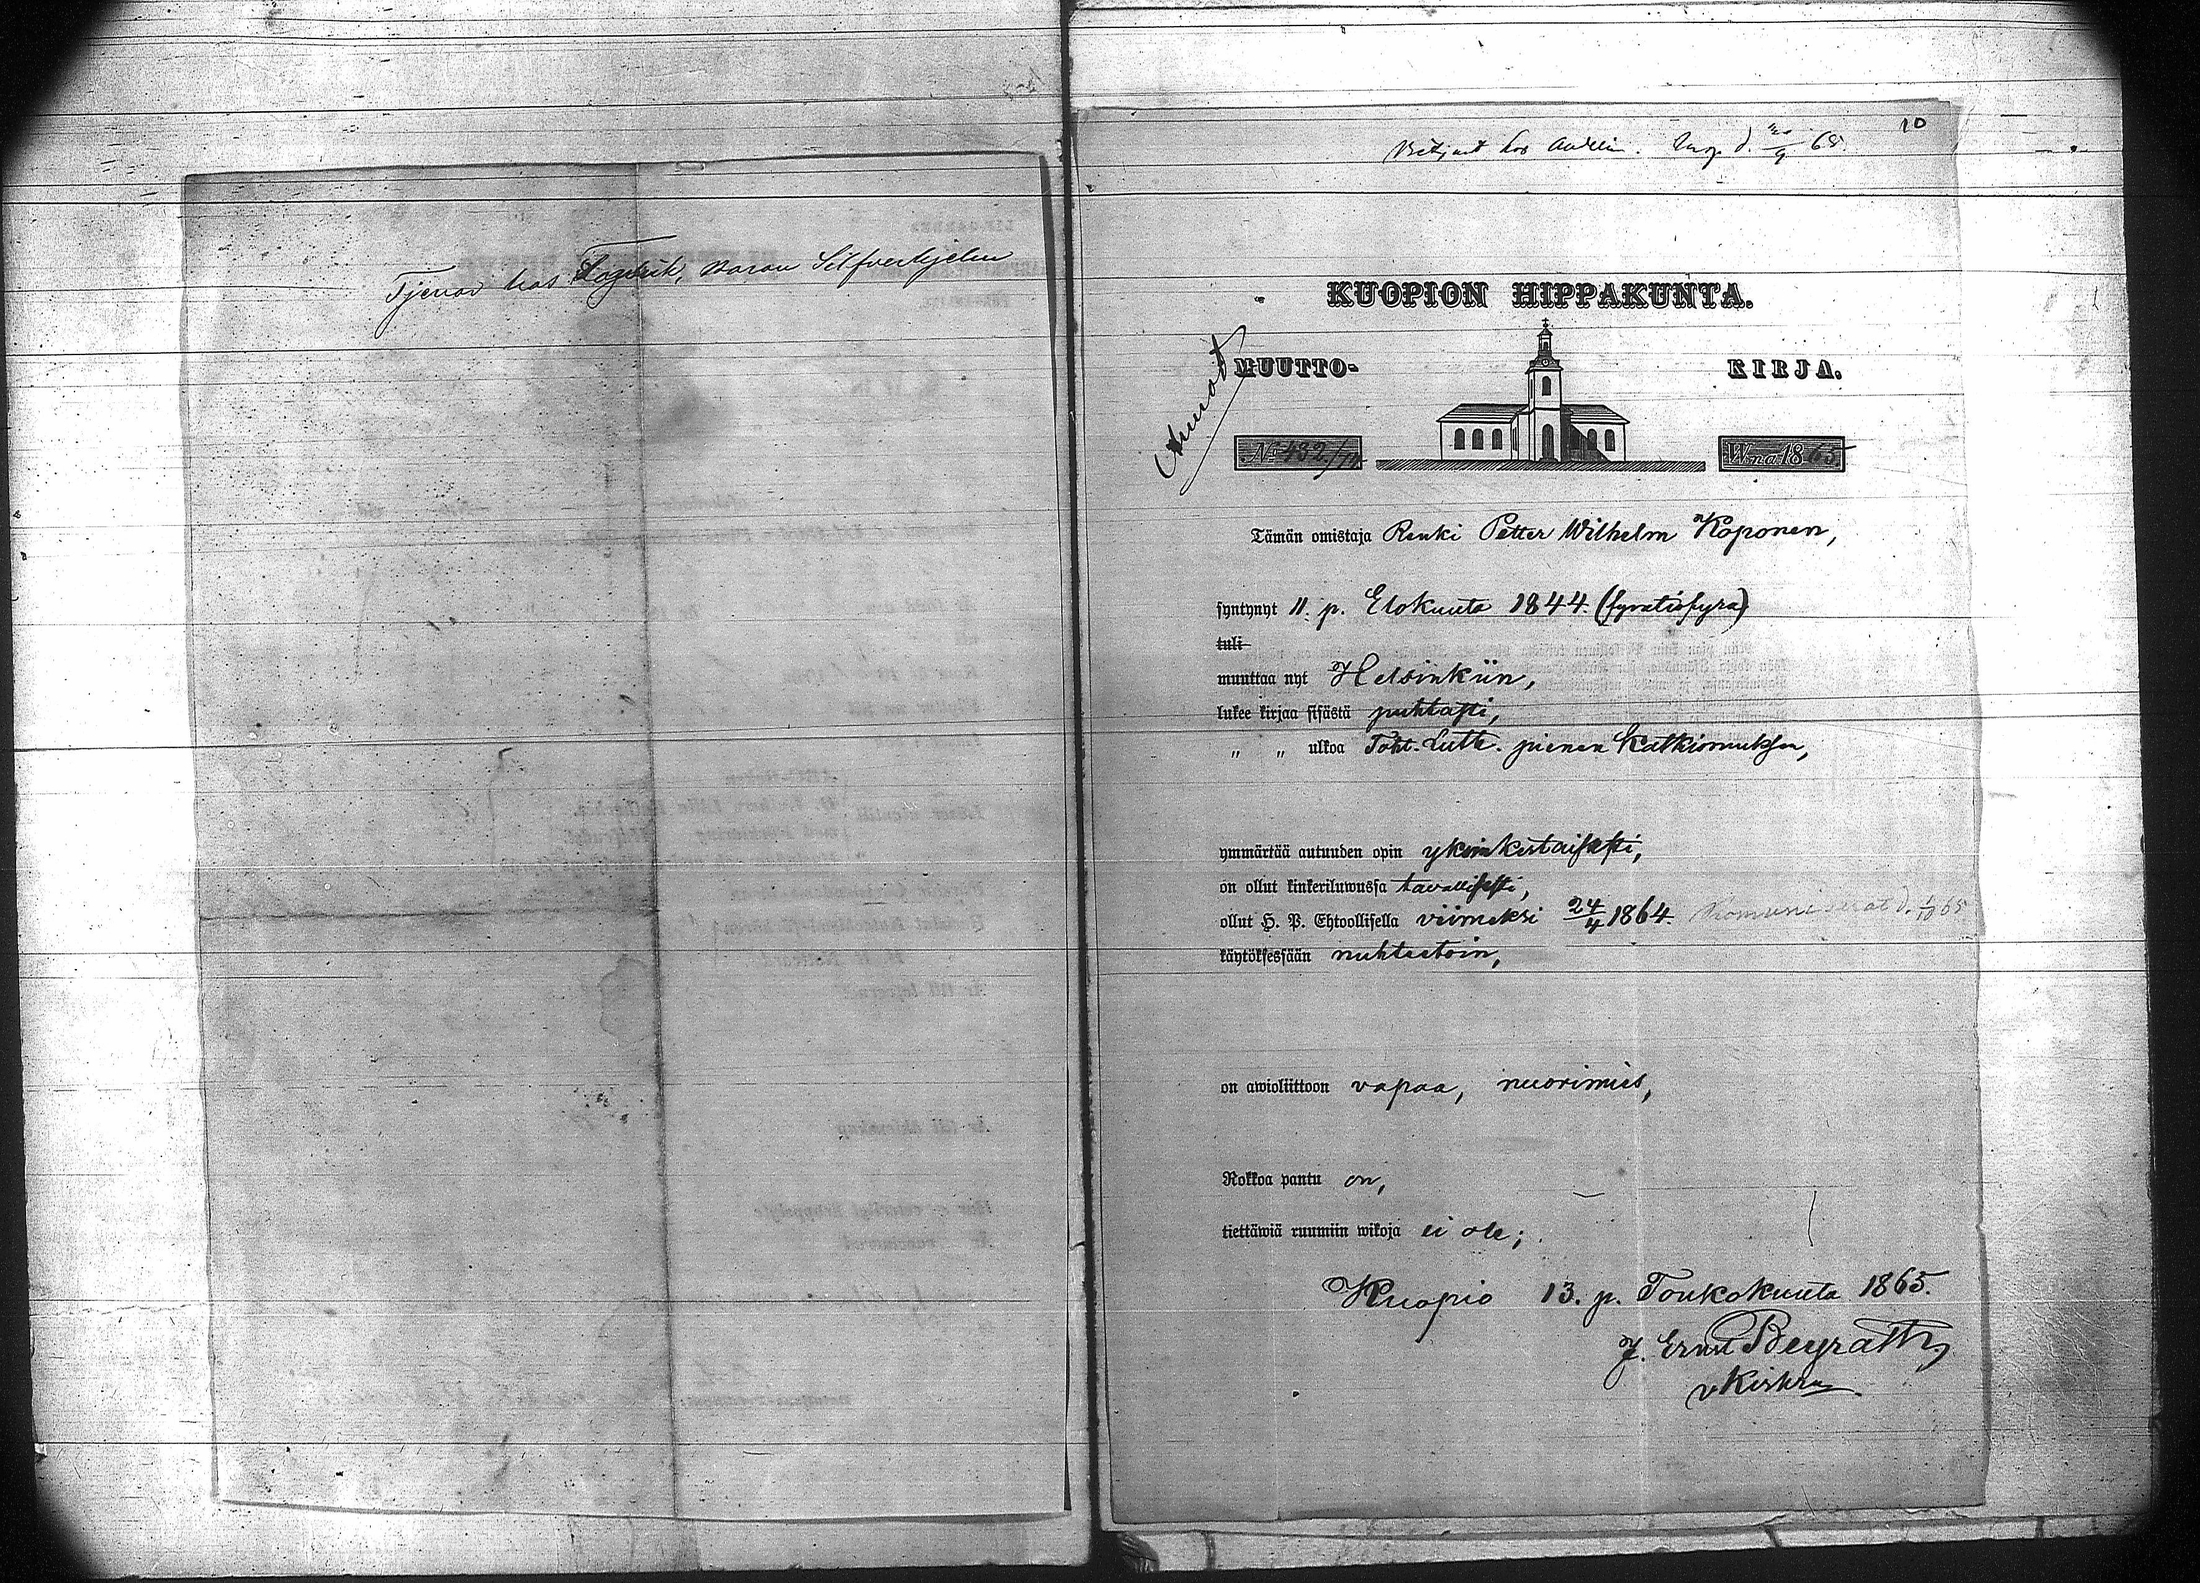 Tjenar hos Baron Silfverhjelm
10
Betjent hos 68.
KUOPION HIPPAKUNTA.
MUUTTO- KIRJA.
No 432/ Wna 1865
Tämän omistaja Renki Petter Wilhelm Koponen,
syntynyt 11. p. Elokuuta 1844. (fyratiofyra)
tuli
muuttaa nyt Helsinkiin,
lukee kirjaa sisästä puhtasti,
„ „ ulkoa Toht. Luth. pienen Katkismuksen,
ymmärtää autuuden opin yksinkertaisesti,
on ollut kinkeriluwussa tavallisesti,
ollut H. P. Ehtoollisella viimeksi 24/4 1864. Kommunicerat d. 1/10 65
käytöksessään nuhteetoin,
on awioliittoon vapaa, nuorimies,
Rokkoa pantu on,
tiettäwiä ruumiin wikoja ei ole;
Kuopio 13. p. Toukokuuta 1865.
J. Ernst Beyrath,
v Kirkh